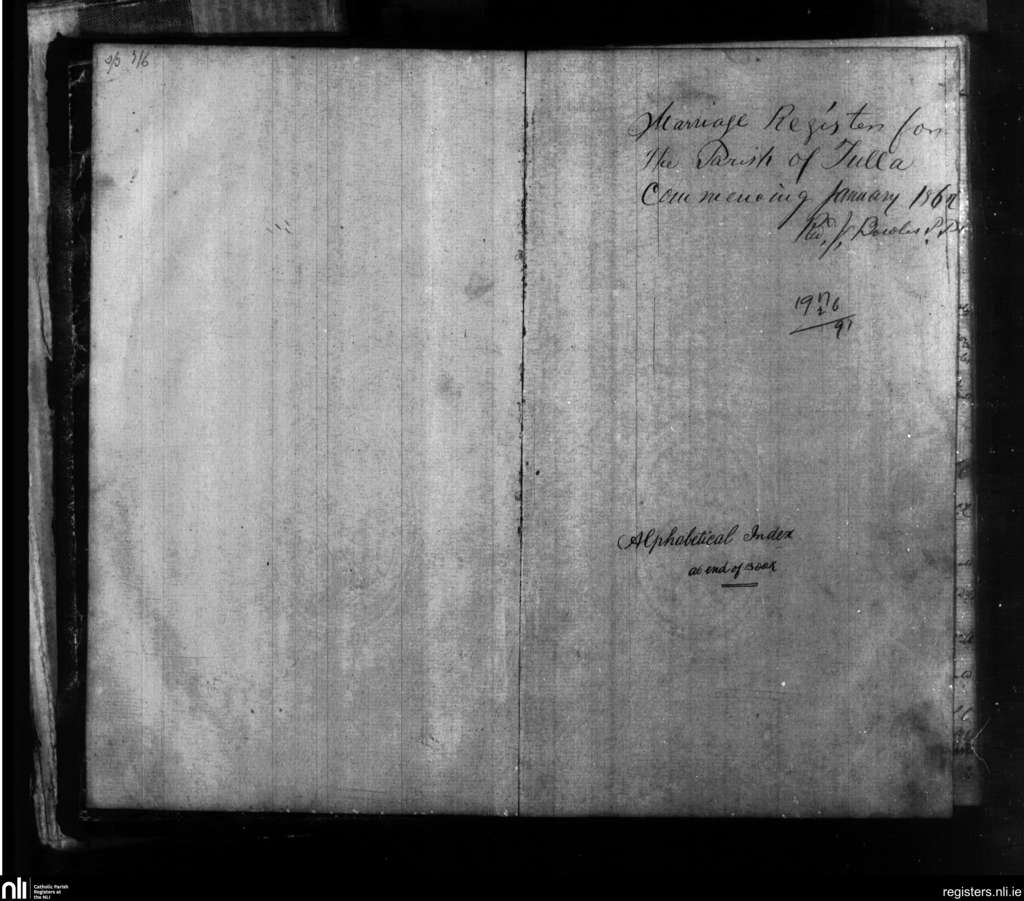 9/6 3/6
Marriage Register for
The Parish of Tulla
Commencing January 186
Rev. J. Bowles P.P.
19
6
91
Alphabetical Index
at end of Book
nli
Catholic Parish
Registers at
the NLI
registers.nli.ie